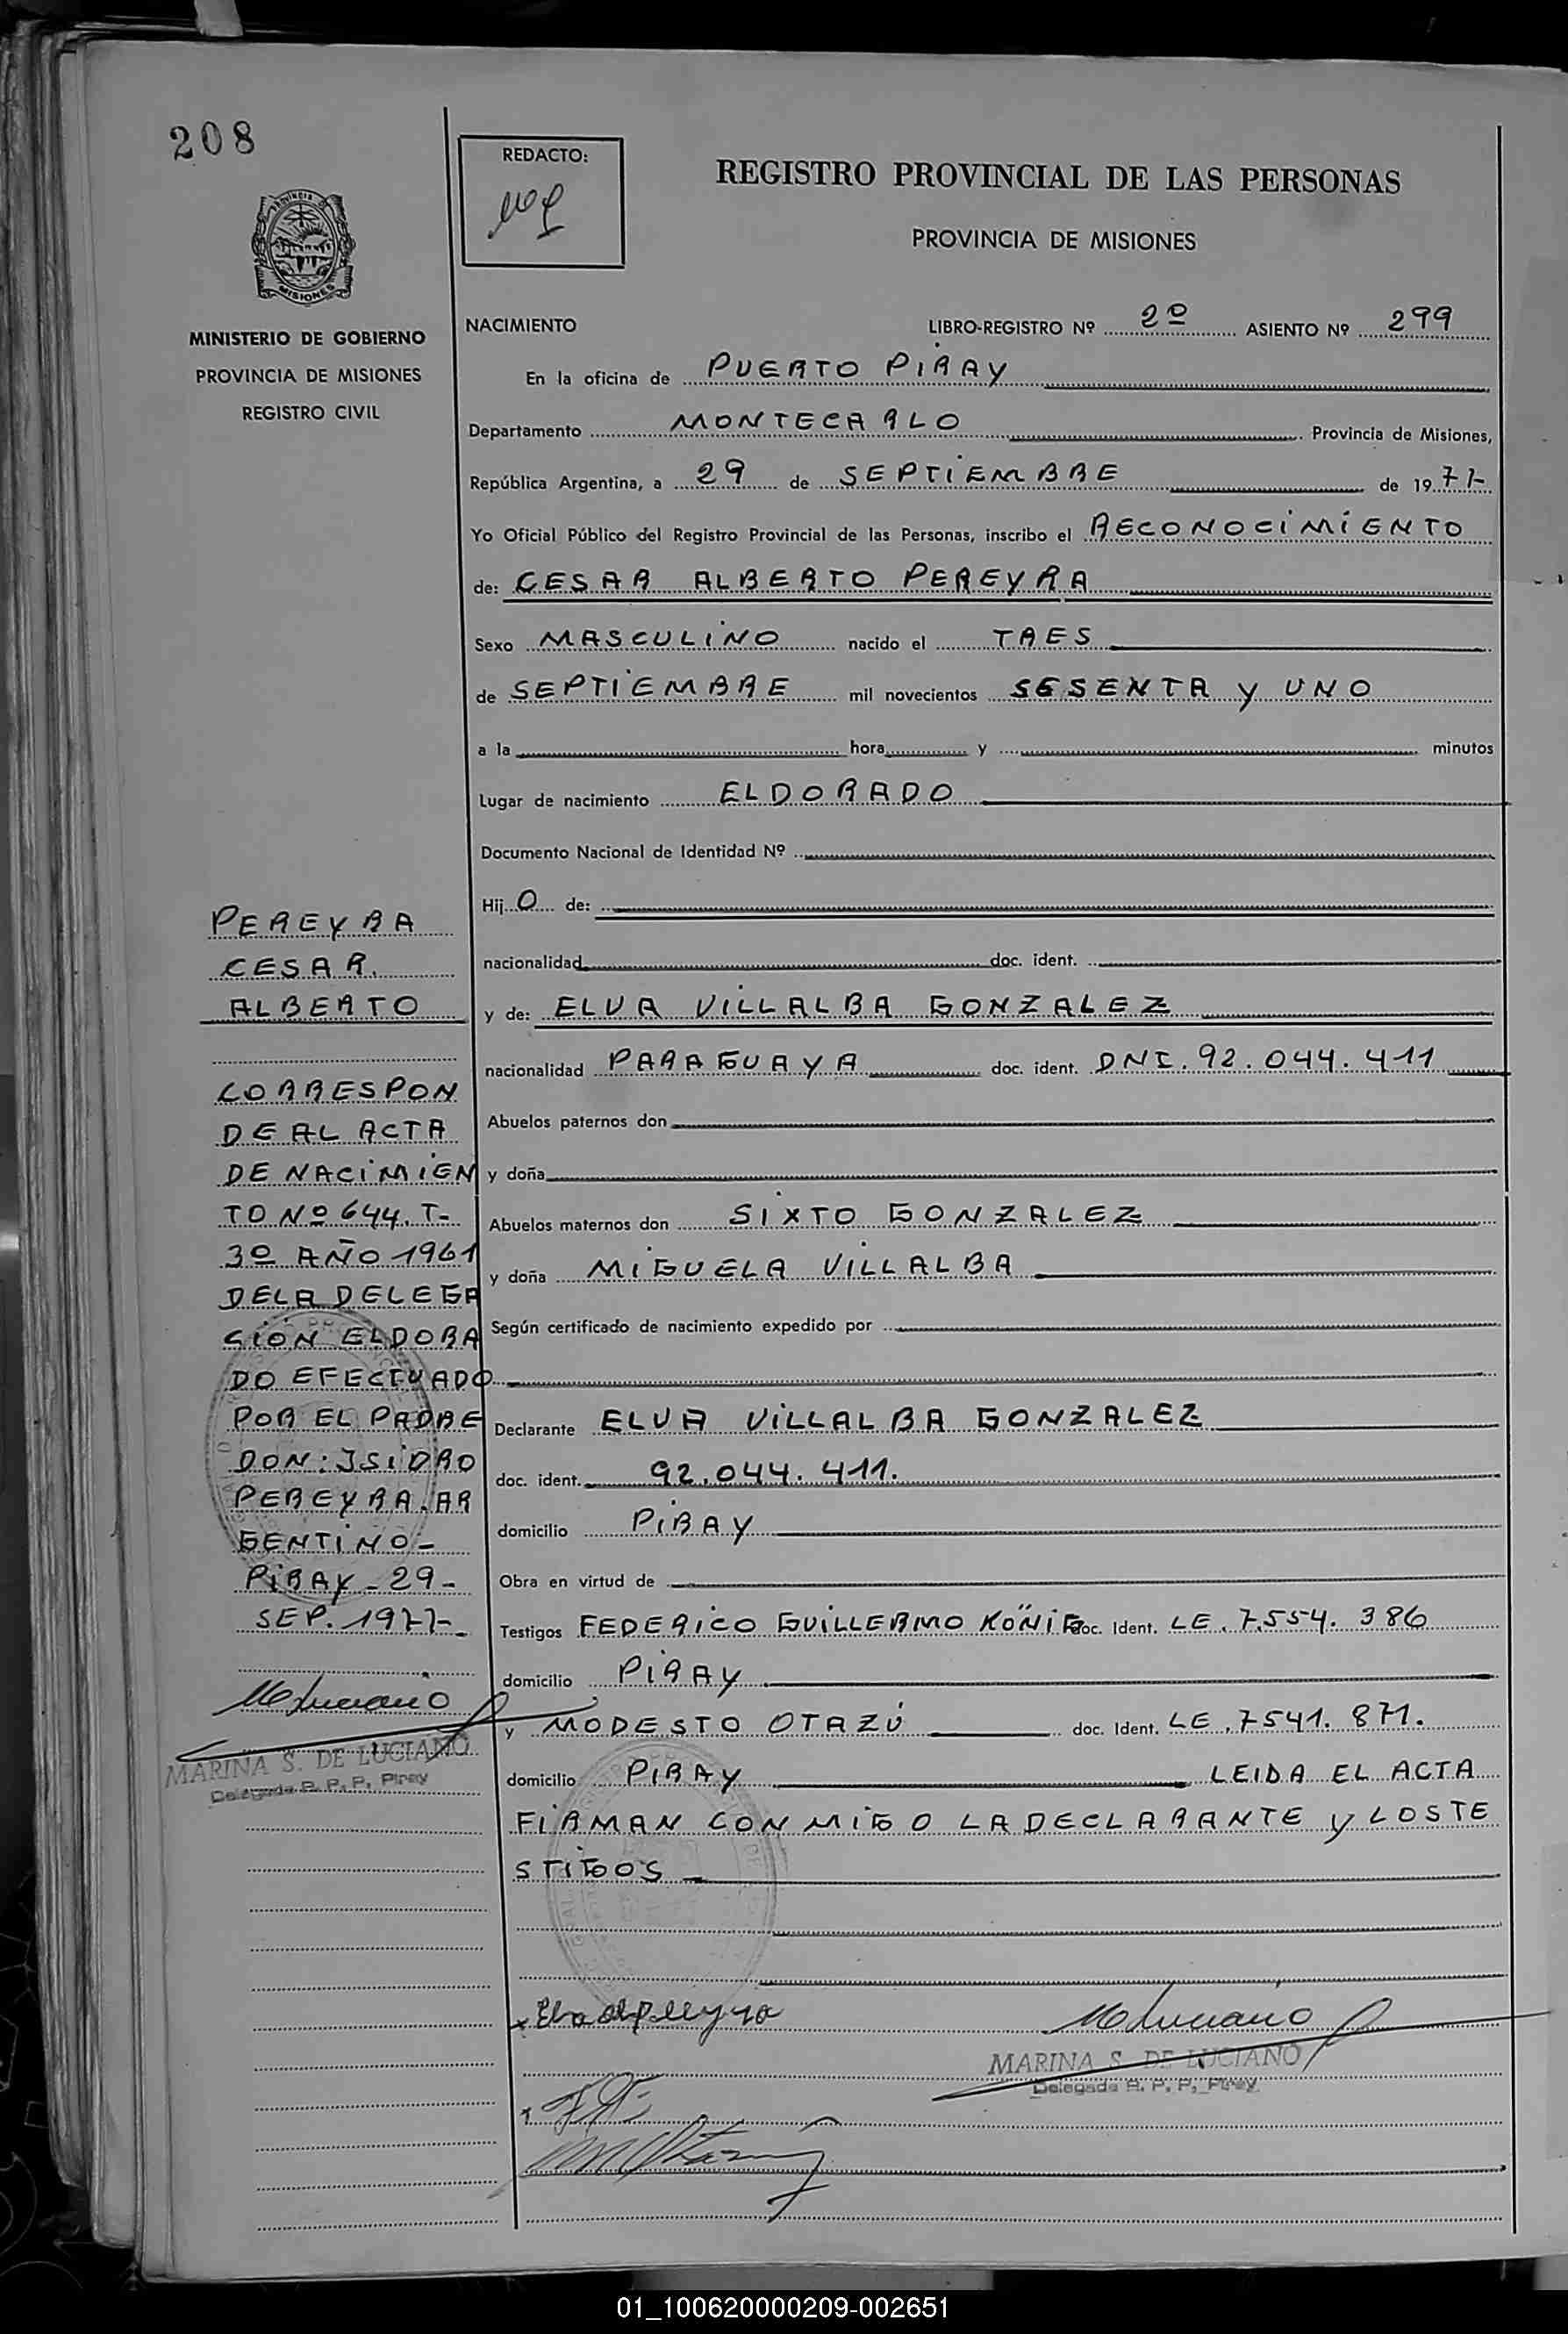 208
REDACTO:
REGISTRO PROVINCIAL DE LAS PERSONAS
PROVINCIA DE MISIONES
MISIONES
MINISTERIO DE GOBIERNO
PROVINCIA DE MISIONES
REGISTRO CIVIL
NACIMIENTO LIBRO-REGISTRO Nº 2º ASIENTO Nº 299
En la oficina de PUERTO PIRAY
Departamento MONTECARLO Provincia de Misiones,
República Argentina, a 29 de SEPTIEMBRE de 1977-
Yo Oficial Público del Registro Provincial de las Personas, inscribo el RECONOCIMIENTO
de: CESAR ALBERTO PEREYRA
Sexo MASCULINO nacido el TRES
de SEPTIEMBRE mil novecientos SESENTA y UNO
a la hora y minutos
Lugar de nacimiento ELDORADO
Documento Nacional de Identidad Nº
Hij O de:
nacionalidad doc. ident.
y de: ELVA VILLALBA GONZALEZ
nacionalidad PARAGUAYA doc. ident. DNI. 92.044.411
Abuelos paternos don
y doña
Abuelos maternos don SIXTO GONZALEZ
y doña MIGUELA VILLALBA
Según certificado de nacimiento expedido por
Declarante ELVA VILLALBA GONZALEZ
doc. ident. 92.044.411.
domicilio PIRAY
Obra en virtud de
Testigos FEDERICO GUILLERMO KÖNIG doc. Ident. LE. 7.554.386
domicilio PIRAY
y MODESTO OTAZÚ doc. Ident. LE. 7541.871.
domicilio PIRAY LEIDA EL ACTA
FIRMAN CONMIGO LA DECLARANTE y LOS TE
STIGOS
MARINA S. DE LUCIANO
Delegada R. P. P. Piray
PEREYRA
CESAR
ALBERTO
CORRESPON
DE AL ACTA
DE NACIMIEN
TO Nº 644. T-
3º AÑO 1961
DE LA DELEGA
CIÓN ELDORA
DO EFECTUADO
POR EL PADRE
DON: ISIDRO
PEREYRA. AR
GENTINO-
PIRAY-29-
SEP. 1977-
MARINA S. DE LUCIANO
Delegada R. P. P. Piray
01_100620000209-002651